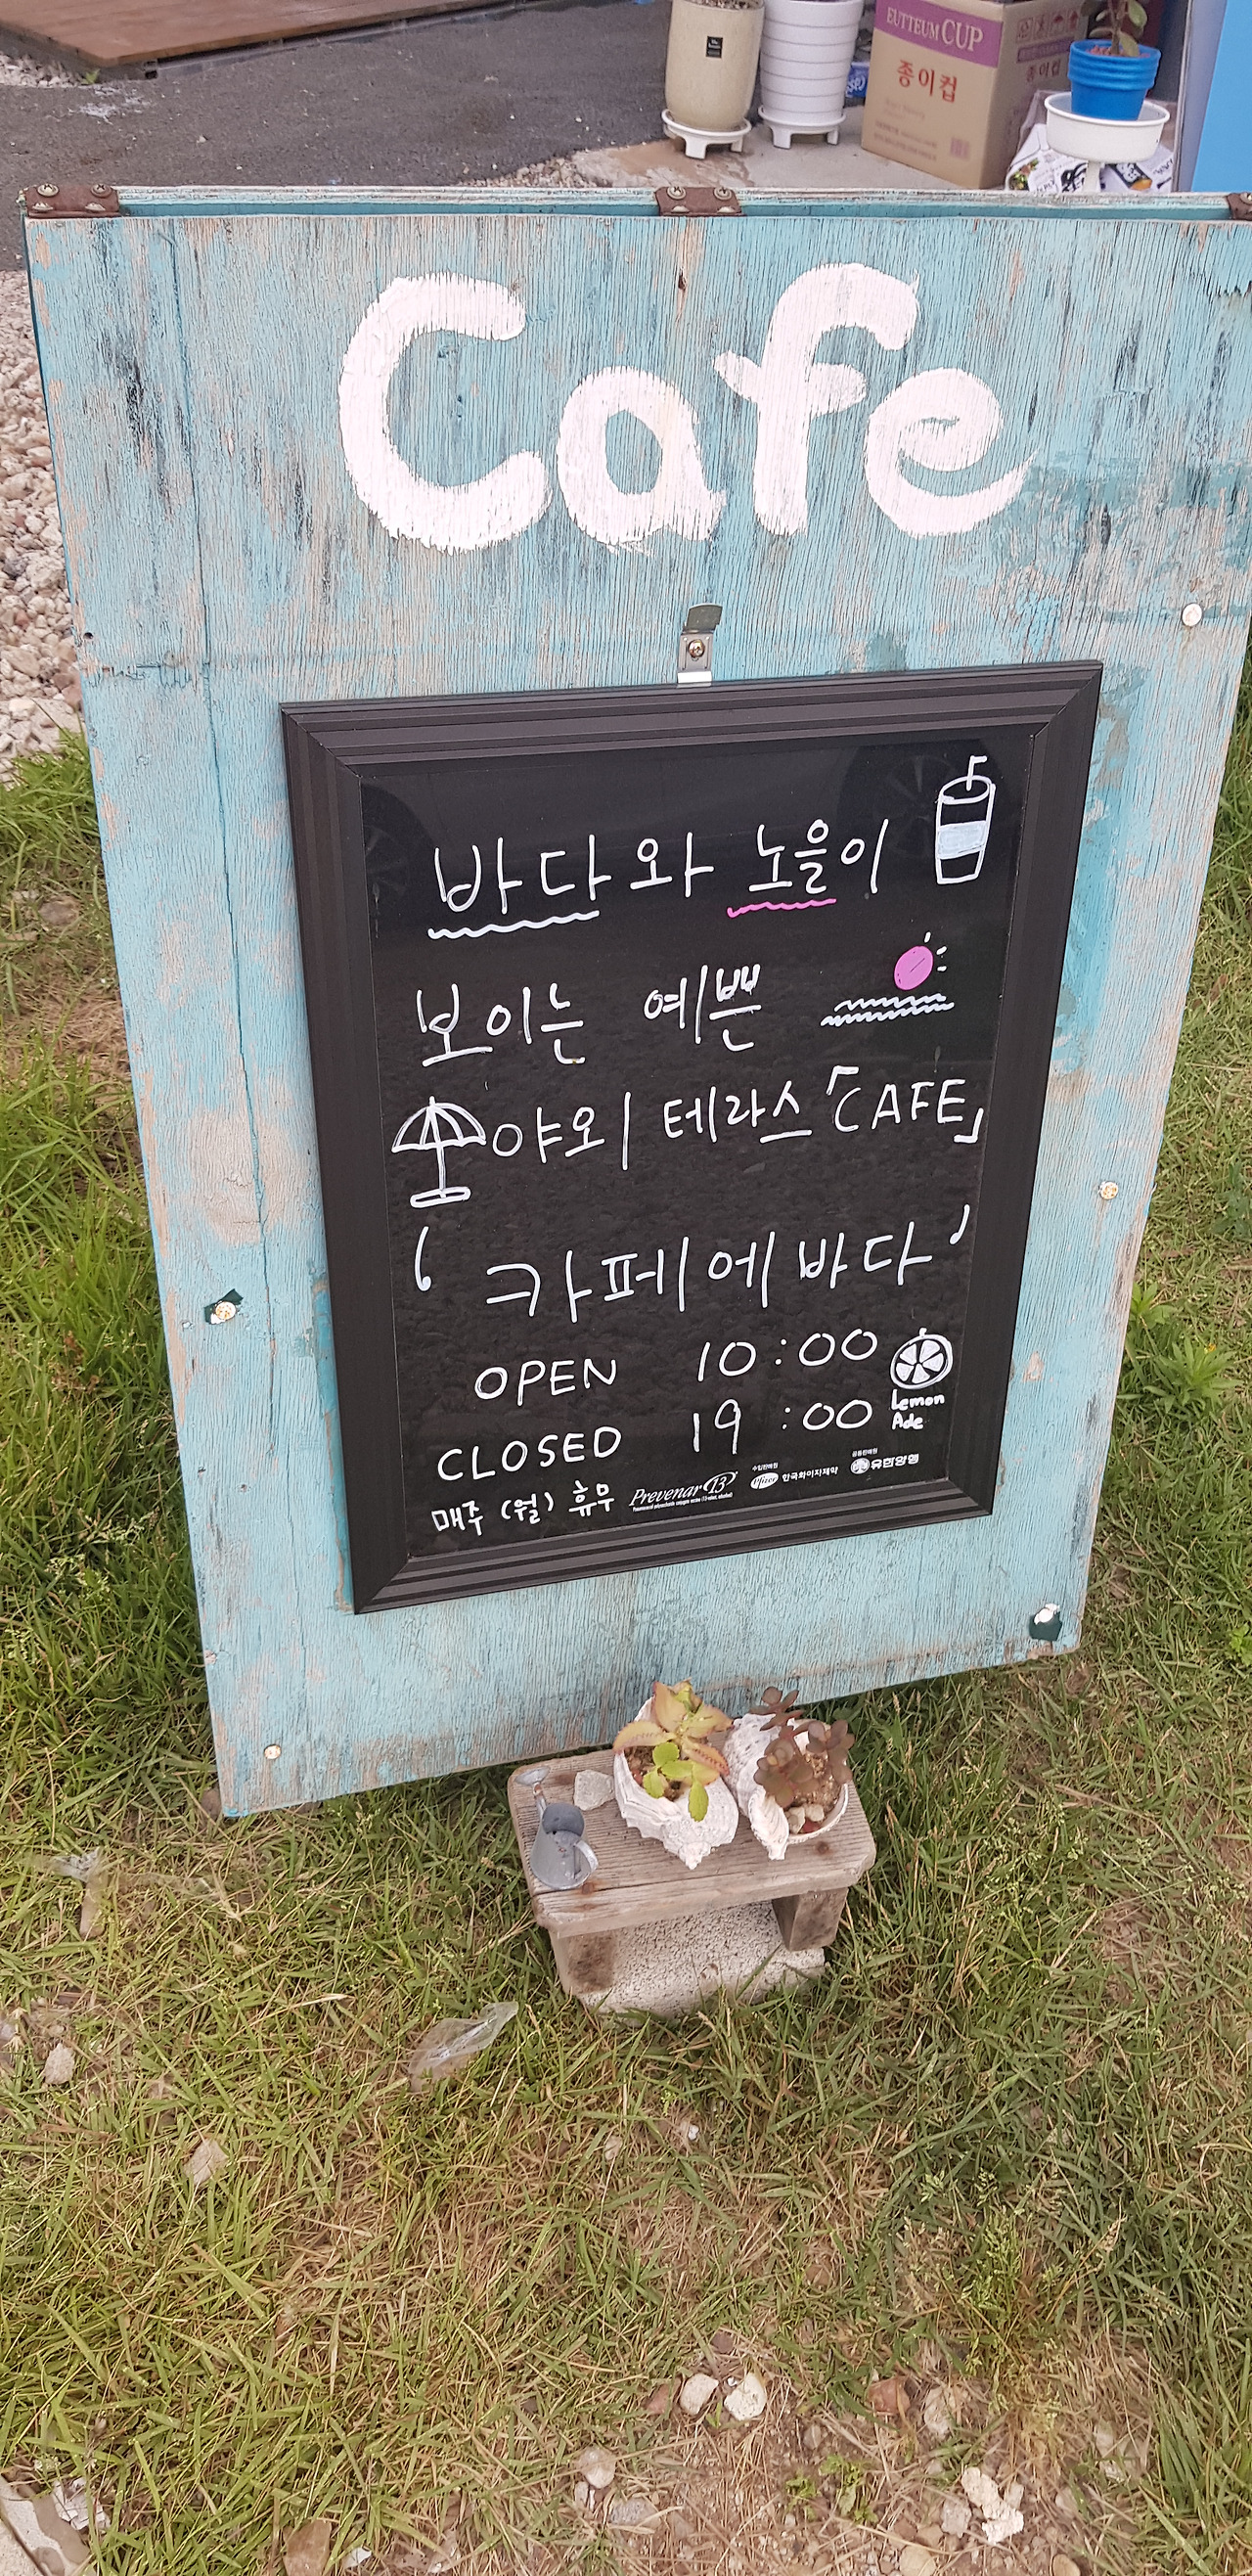 EUTTEUM CUP
종이컵
종이컵
Cafe
바다와 노을이
보이는 예쁜
야외 테라스 「CAFE」
' 카페에바다 '
OPEN 10:00
CLOSED 19:00
Lemon
Ade
매주 (월) 휴무
Prevenar 13
수입판매원
Pfizer 한국화이자제약
공동판매원
유한양행